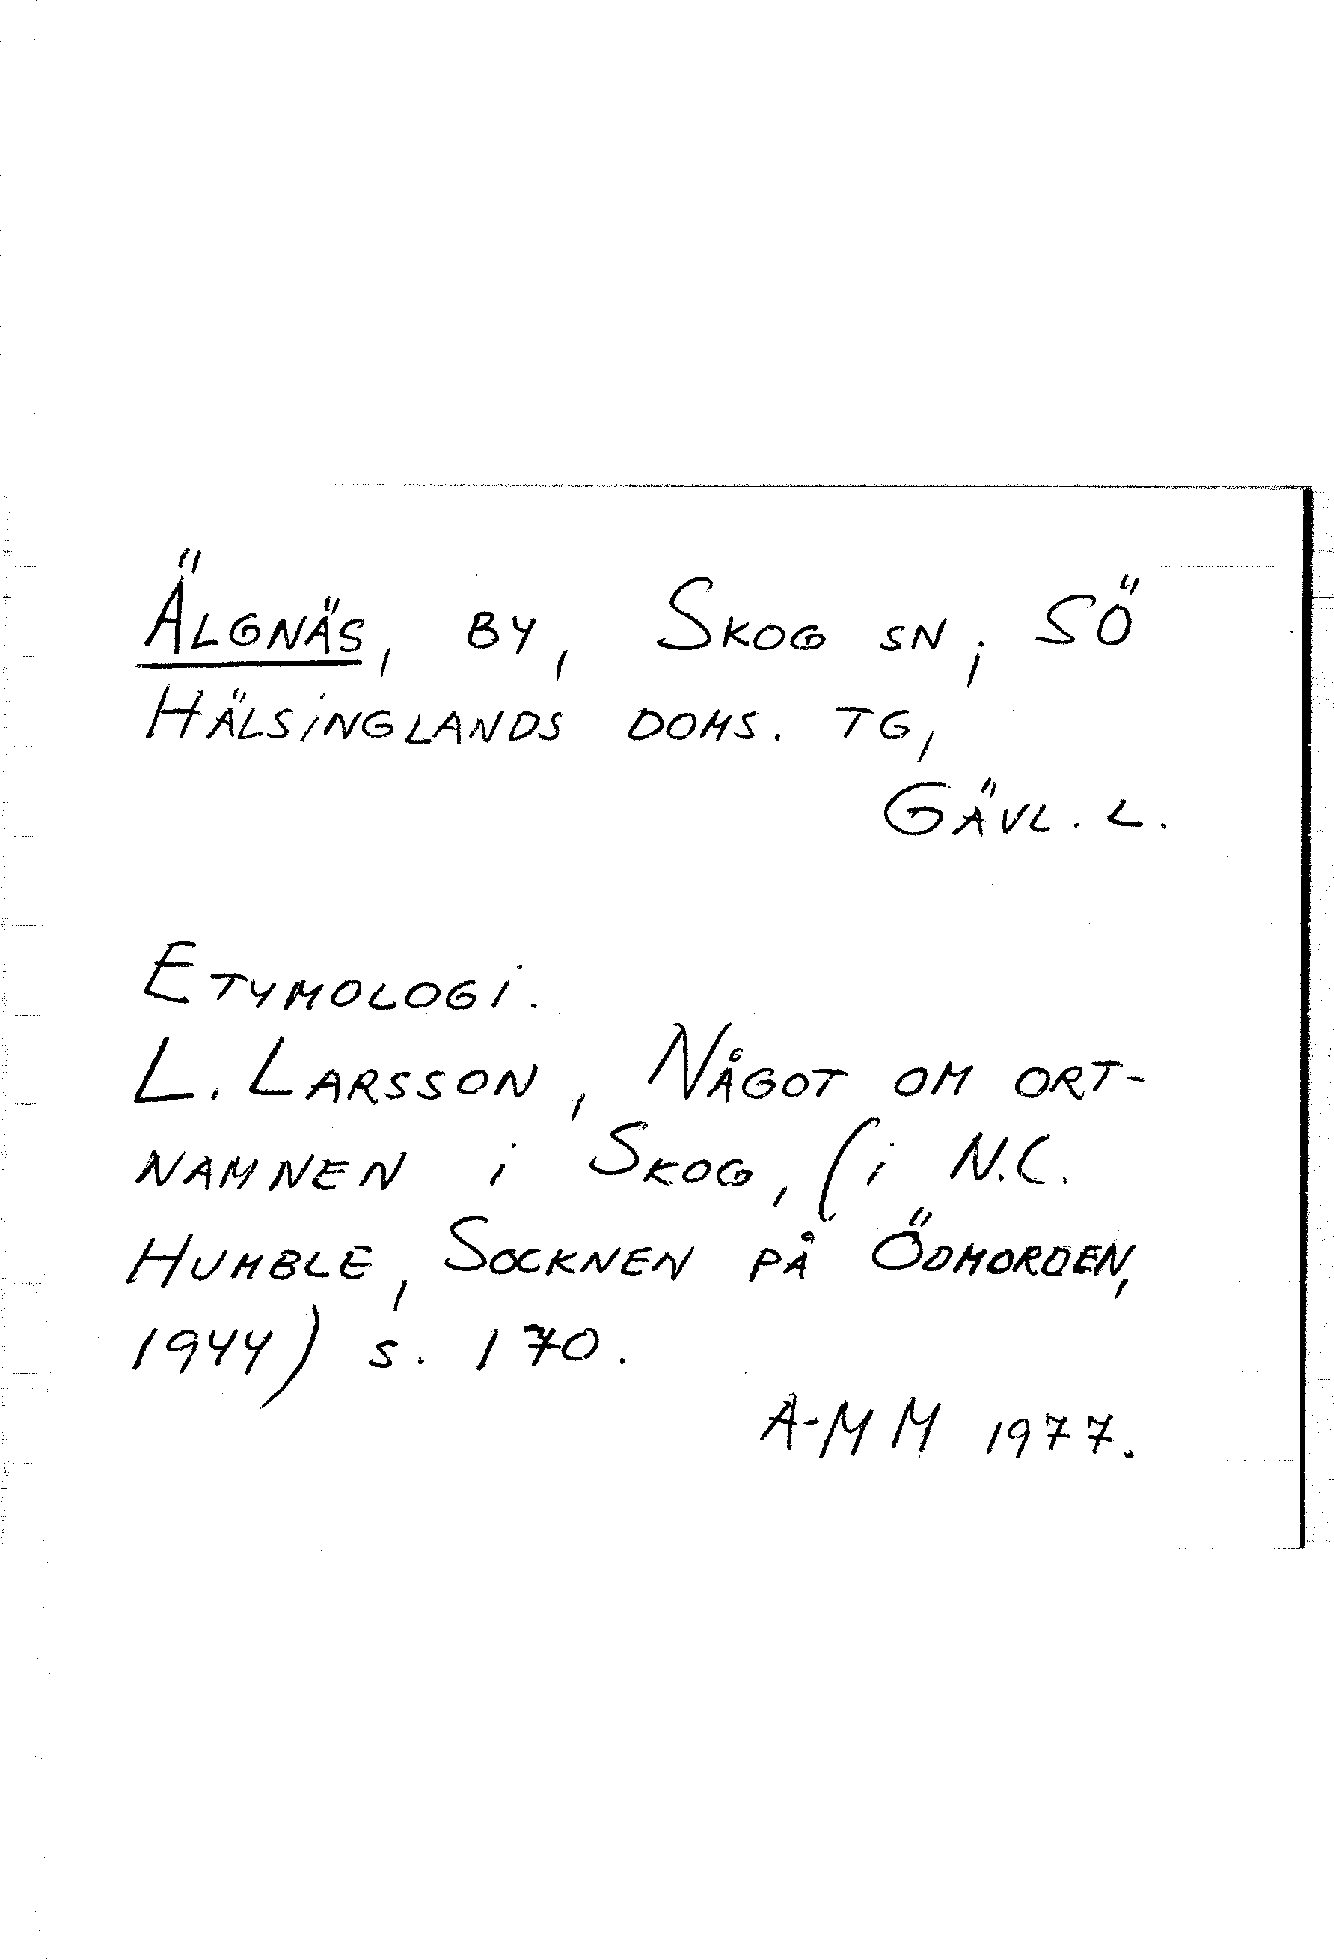 Älgnäs, by, Skog sn; SÖ
Hälsinglands doms. tg,
Gävl. l.
Etymologi.
L. Larsson, Något om ort-
namnen i Skog, (i N.C.
Humble, Socknen på Ödmorden,
1944) s. 170.
A-MM 1977.